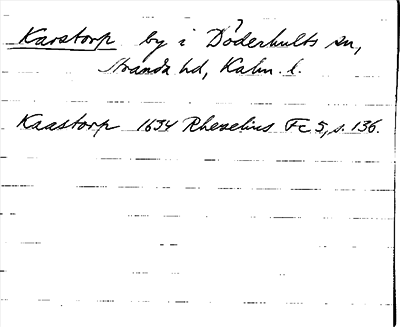 Karstorp by i Döderhults sn,
Stranda hd, Kalm. l.
Kaastorp 1634 Rhezelius Fc 5, s. 136.